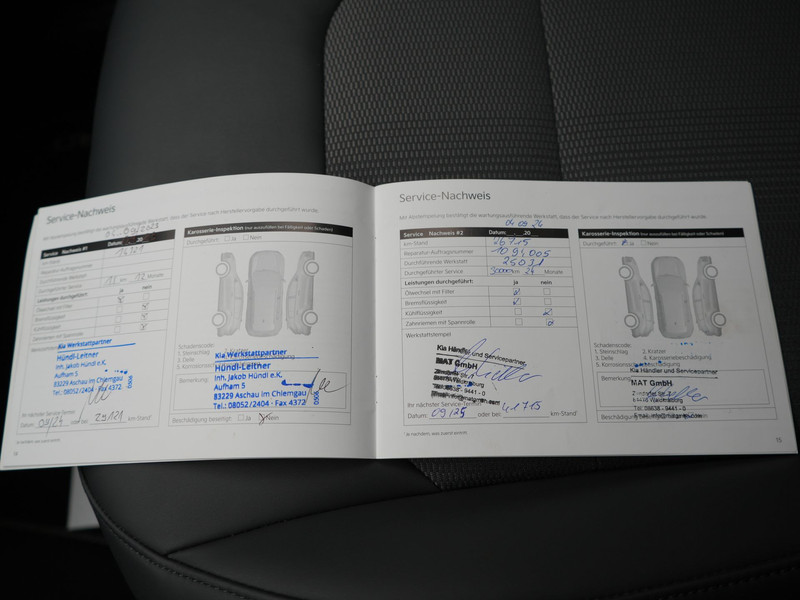 Service-Nachweis
Mit Abstempelung bestätigt die wartungsausführende Werkstatt, dass der Service nach Herstellervorgabe durchgeführt wurde.
Service Nachweis #1 Datum:
km-Stand
Reparatur-Auftragsnummer
Durchführende Werkstatt
Durchgeführter Service Monate
Leistungen durchgeführt: ja nein
Ölwechsel mit Filter
Bremsflüssigkeit
Kühlflüssigkeit
Zahnriemen mit Spannrolle
Werkstattstempel
Kia Werkstattpartner
Hündl-Leitner
Inh. Jakob Hündl e.K.
Aufham 5
83229 Aschau im Chiemgau
Tel.: 08052/2404 - Fax 4372
Ihr nächster Service-Termin:
Datum: 09/24 oder bei 29121 km-Stand
14
Karosserie-Inspektion (nur ausfüllen bei Fälligkeit oder Schäden)
Durchgeführt: Ja Nein
Schadenscode:
1. Steinschlag 2. Kratzer
3. Delle
Bemerkung:
Kia Werkstattpartner
Hündl-Leitner
Inh. Jakob Hündl e.K.
Aufham 5
83229 Aschau im Chiemgau
Tel.: 08052/2404 - Fax 4372
Beschädigung beseitigt: Ja Nein
Service-Nachweis
Mit Abstempelung bestätigt die wartungsausführende Werkstatt, dass der Service nach Herstellervorgabe durchgeführt wurde.
04 09 24
Service Nachweis #2 Datum: . .20
km-Stand 26715
Reparatur-Auftragsnummer 1094005
Durchführende Werkstatt 25031
Durchgeführter Service 30000 km 24 Monate
Leistungen durchgeführt: ja nein
Ölwechsel mit Filter
Bremsflüssigkeit
Kühlflüssigkeit
Zahnriemen mit Spannrolle
Werkstattstempel
Kia Händler und Servicepartner
MAT GmbH
Ihr nächster Service-Termin:
Datum: 09/25 oder bei 41715 km-Stand
Karosserie-Inspektion (nur ausfüllen bei Fälligkeit oder Schäden)
Durchgeführt: Ja Nein
Schadenscode:
1. Steinschlag 2. Kratzer
3. Delle 4. Karosseriebeschädigung
Kia Händler und Servicepartner
Bemerkung:
MAT GmbH
Tel: 08638 - 9441 - 0
15